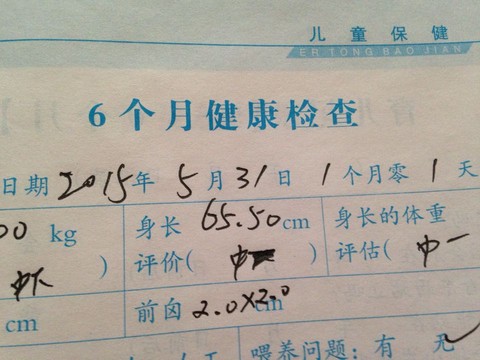 儿童保健
ER TONG BAO JIAN
6个月健康检查
日期2015年5月31日 1个月零1天
00 kg 身长65.50cm 身长的体重
中下) 评价(中) 评估(中一
cm 前囟2.0×2.0cm
喂养问题:有 无✓